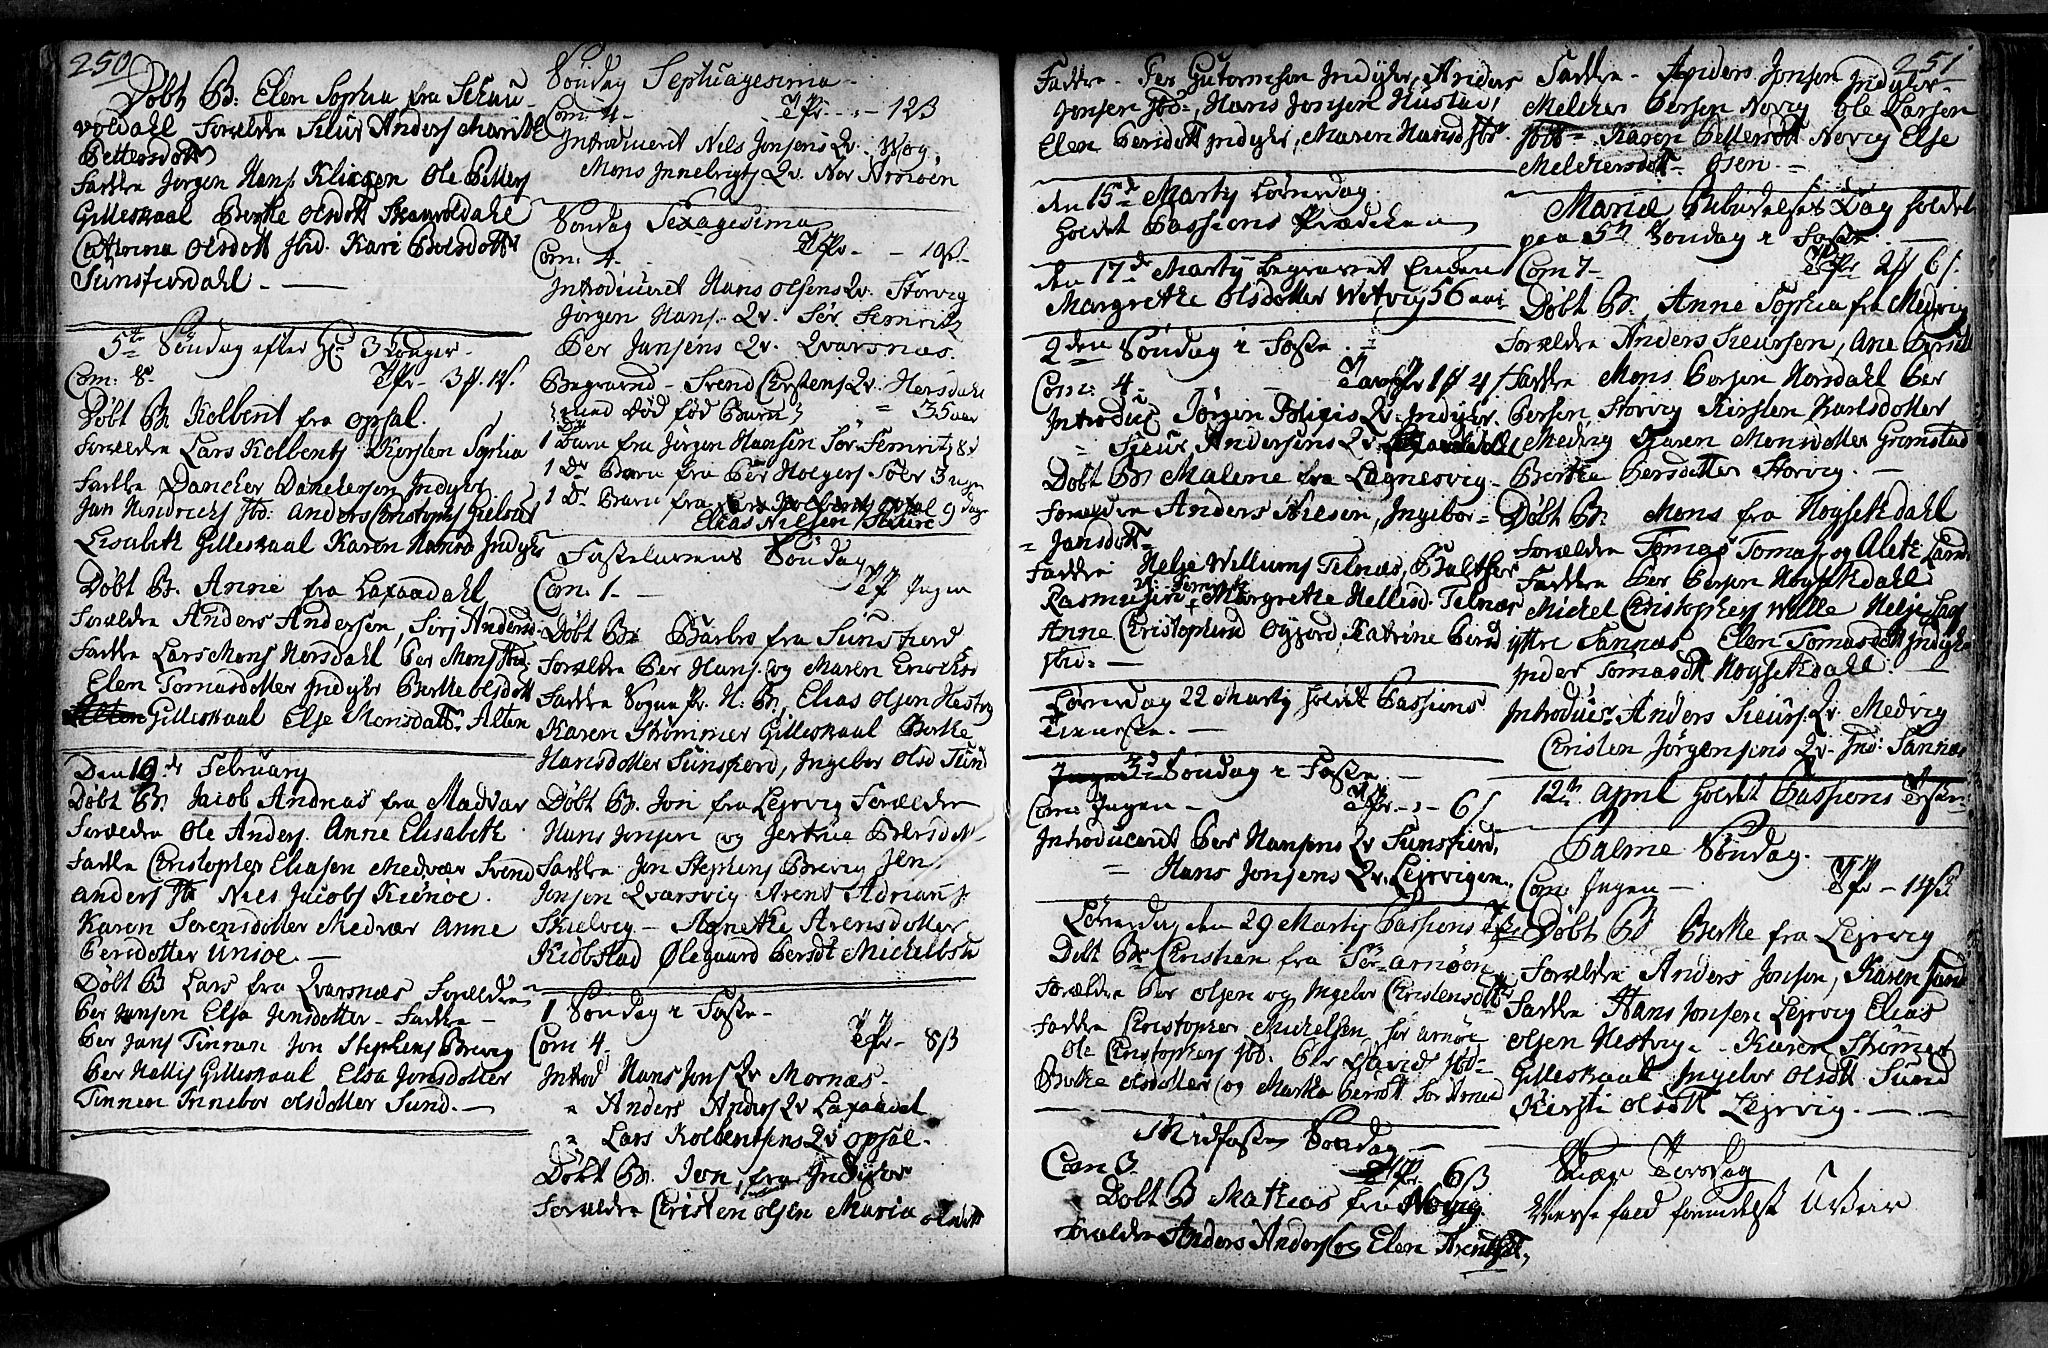 250
Døbt B: Elen Sophia fra Skau-
voldahl Forældre Siur Anders Marithe
Pettersdott
Fadde Jørgen Hans. Klippen Ole Petters
Gilleskaal Berthe Olsdott Skauvoldahl
Catrina Olsdott ibid. Kari Olsdott
Sunsfiordahl
5te Søndag efter H: 3 Konger.
Com: 8. Tfr- 3
Døbt B: Kolbent fra Opsal.
Forældre Lars Kolbents Kirsten Sophia
Fadde Dancker Danckersen Indyhr
Jan Hendrichs ibd: Anders Christophs
Lisabeth Gilleskaal Karen Hansd Indyhr
Døbt B. Anne fra Laxaadahl
Forældre Anders Andersen, Siri Andersd
Fadde Lars Mons Horsdahl Per Mons ibid
Elen Tomasdotter Indyhr Berthe Olsdott
Gilleskaal Else Monsdatt Alten
Den 10de February
Døbt B. Jacob Andreas fra Madvær
Forældre Ole Anders. Anne Elisabeth
Fadde Christopher Eliasen Medvær Svend
Anders ib Niels Jacobs Kiønøe.
Karen Sørensdotter Medvær Anne
Persdotter Unioe.
Døbt B Lars fra Qvarsnæs Forældre
Per Jansen Elsa Jensdotter - Fadde-
Per Jans Tinnan Jon Stephens Brevig
Per Hellis Gilleskaal Elsa Jonsdotter
Tinnen Innebor Olsdotter Sund.
Søndag Septuagesima
Com: 4. Tfr - 12ß
Introduceret Niels Jonsens Qv. Wog.
Mons Innebrigts Qv. Nor Arnøen
Søndag Sexagesima
Com: 4. Tfr - 19ß.
Introduceret Hans Olsens Qv. Storvig
Jørgen Hans. Qv. Sør. Femris
Per Jansens Qv. Qvarsnæs.
Begravnd - Svend Christens Qv. Horsdahl
med død fød Barn = 35 aar
1 Barn fra Jørgen Hansen Sør Femris 8
1 Dr Barn fra Per Holgers Sober 3 uger
1 Dr Barn fra
Elias Nilsen 9 dage
Fastelavens Søndag
Com: 1. Tfr Ingen
Døbt B: Barbro fra Sunsfiord
Forældre Per Hans. og Maren Erichsd
Fadde Sogne Pr. H. B, Elias Olsen Nestvig
Karen Strømmer Gilleskaal Berthe
Hansdotter Sunsfiord, Ingebor Olsd Sund
Døbt B. Jon fra Lejrvig Forældre
Hans Jonsen og Jertrue Persdott
Fadde Jon Stephens Brevig Jens
Jonsen Qvarsvig Arent Adrians
Skielvig - Agnethe Arensdotter
Kiobstad Ølegaard Persdt Michelbst
1 Søndag i Faste-
Com 4. Tfr - 8ß
Introd Hans Jons Qv Mornæs-
" Anders Anders Qv Laxaadal
" Lars Kolbentsens Qv Opsal-
Døbt B. Jon, fra Indyhr
Forældre Christen Olsen Maria Olsdott
251
Fadde- Per Gutormsen Indyhr, Anders
Jonsen ibd, Hans Jonsen Hustad,
Elen Persdott Indyhr, Maren Hansd ibd.
den 15de Marty Løverdag.
holdet Passions Prædiken
den 17de Marty begravet Enken
Margrethe Olsdotter Wetvig 56 aar
2den Søndag i Faste.
Com: 4. Tavlfr 1
Introdu Jørgen Qv. Indyhr
" Sieur Andersens Qv
Døbt B: Malene fra Lagnesvig-
Forældre Anders Niesen, Ingebor-
Jansdott
Fadde Helje Willums Telnæs, Balther
Rasmusen Margrethe Hellisd. Telnæs
Anne Christophersd Katrine Persd
ibd:
Løverdag 22 Marty holdt Passions
Tieneste.
3die Søndag i Faste.
Com: Ingen - Tfr- 6
Introduceret Per Hansens Qv Sunsfiord,
- Hans Jonsens Qv. Lejrvigen.
Løverdag den 29 Marty Passions
Døbt B: Christian fra Sør-arnøen
Forældre Per Olsen og Ingebor Christensdtt
Fadde Christopher Mickelsen Sør arnøe
Ole Christophers ibd. Per Davids ibd-
Berthe Olsdotter og Martha Persdt Sør Arnøe
Midfaste Søndag
Com 3. Tfr. 6ß
Døbt B Mathias fra Novig.
Forældre Anders Anders og Elen Arentsdt.
Fadde- Anders Jonsen Indyhr-
Melcher Persen Novig Ole Larsen
ibd= Karen Pettersdott Novig Else
Melchersdott Osen.
Mariæ Bebudelses Dag holdet
paa 5te Søndag i Faste
Com 7- Tfr 2
Døbt B:, Anne Sophia fra Medvig
Forældre Anders Sieursen, Ane Persdtt
Fadde Mons Persen Horsdahl Per
Persen Storvig Kirsten Karlsdotter
Medvig Karen Monsdotter Grønstad
Berthe Persdotter Storvig.
Døbt B: Mons fra Høgsethdahl
Forældre Tomas Tomas, og Aleth Larsd
Fadde Per Persen Høgsethdahl
Michel Christophers Wille Helje Lars
yttre Sannæs Elen Tomasdott Indyhr
Inder Tomasdt Høgsethdahl.
Introducer Anders Sieurs. Qv. Medvig
Christen Jørgensens Qv. Ind: Sannæs
12te April holdt Passions
Palme Søndag.
Com: Ingen - Tfr - 14ß
Døbt B Berthe fra Lejrvig
Forældre Anders Jonsen, Karen
Fadde Hans Jonsen Lejrvig Elias
Olsen Nestvig - Karen Strømer
Gilleskaal Ingebor Olsdtt Sund
Kirsti Olsdtt Lejrvig.
Skiær Torsdag
forfald formedelst Uveir